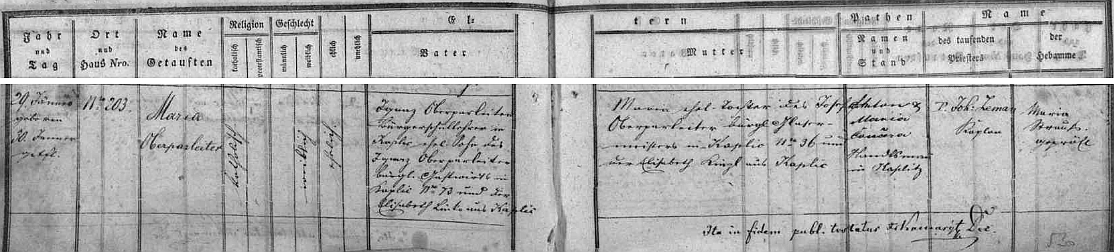 Jahr und Tag
Ort und Haus Nro.
Name des Getauften
Religion
katholisch
protestantisch
Geschlecht
männlich
weiblich
ehlich
unehlich
El=
Vater
tern
Mutter
Pathen
Namen und Stand
Name
des taufenden Priesters
der Hebamme
29. Jänner
geboren
30. Jänner
getft.
Nro 203
Maria
Oberparleiter
katholisch
weiblich
ehelich
Ignaz Oberparleiter
Bürgerschullehrer in
Kaplic ehel. Sohn des
Ignaz Oberparleiter
bürgl. Gastwirts in
Kaplic Nro 73 und der
Elisabeth aus Kaplic
Maria ehel. Tochter des Josef
Oberparleiter bürgl. Glaser-
meisters in Kaplic Nro 36 und
der Elisabeth aus Kaplic
Anton &
Maria
Handelsmann
in Kaplitz
P. Joh. Zeman
Kaplan
Maria
geprüft
Ita in fidem publ. testatus